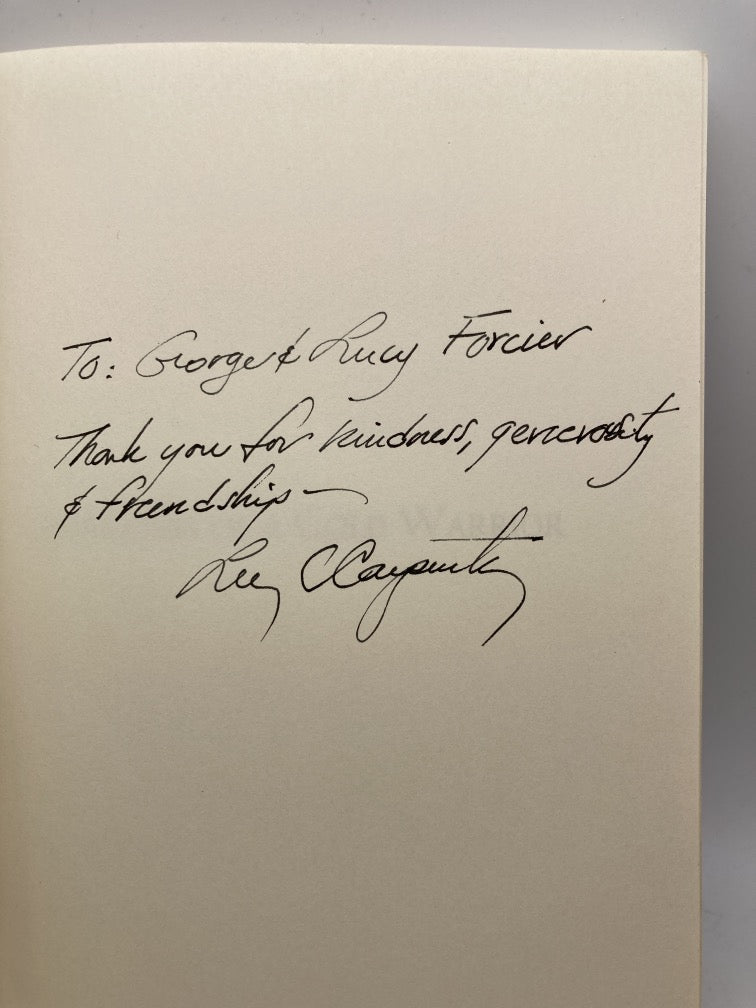 To: George & Lucy Forcier
Thank you for kindness, generosity
& friendship —
Carpenter
Warrior